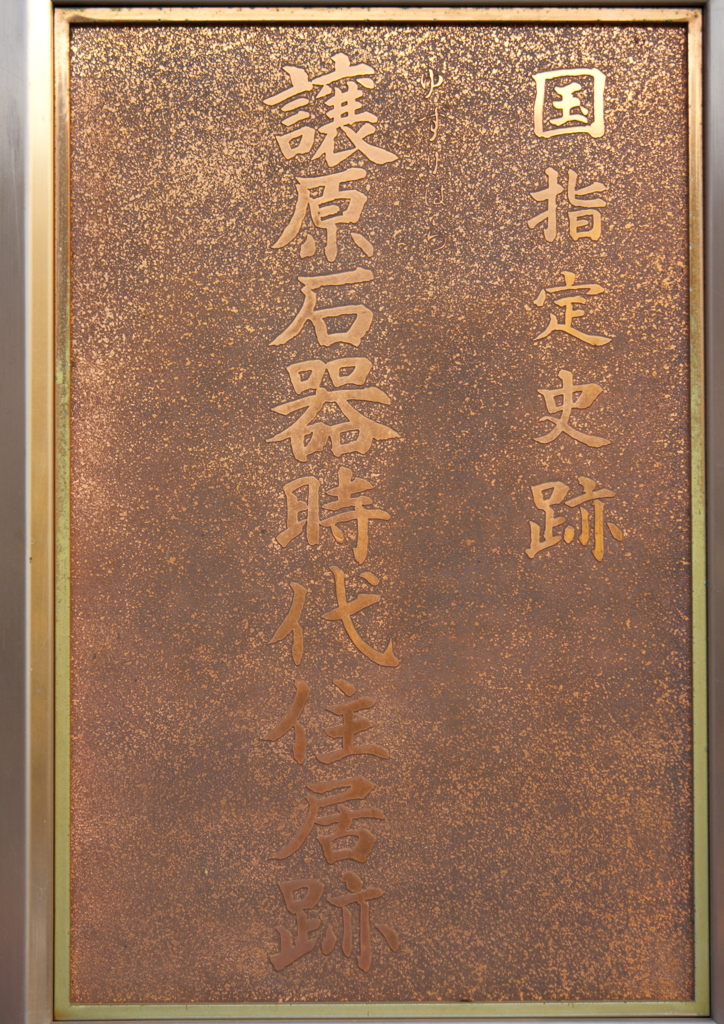 国指定史跡
ゆずりはら
譲原石器時代住居跡